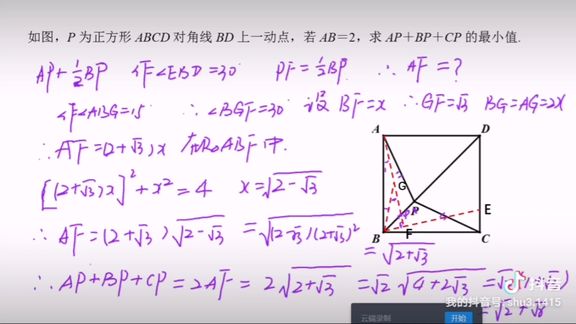 如图，P 为正方形 ABCD 对角线 BD 上一动点，若 AB＝2，求 AP＋BP＋CP 的最小值.
AP+½BP 作∠EBD=30° PF=½BP ∴ AF=?
作∠ABG=15° ∴∠BGF=30° 设 BF=x ∴GF=√3x BG=AG=2x
∴AF=(2+√3)x 在Rt△ABF中.
[(2+√3)x]²+x²=4 x=√(2-√3)
∴ AF=(2+√3)√(2-√3) =√((2-√3)(2+√3)²)
=√(2+√3)
∴ AP+BP+CP=2AF=2√(2+√3) =√2 √(4+2√3)
=√2+√6
A
D
G
P
E
B
F
C
抖音
我的抖音号: shu3.1415
云磁录制
开始